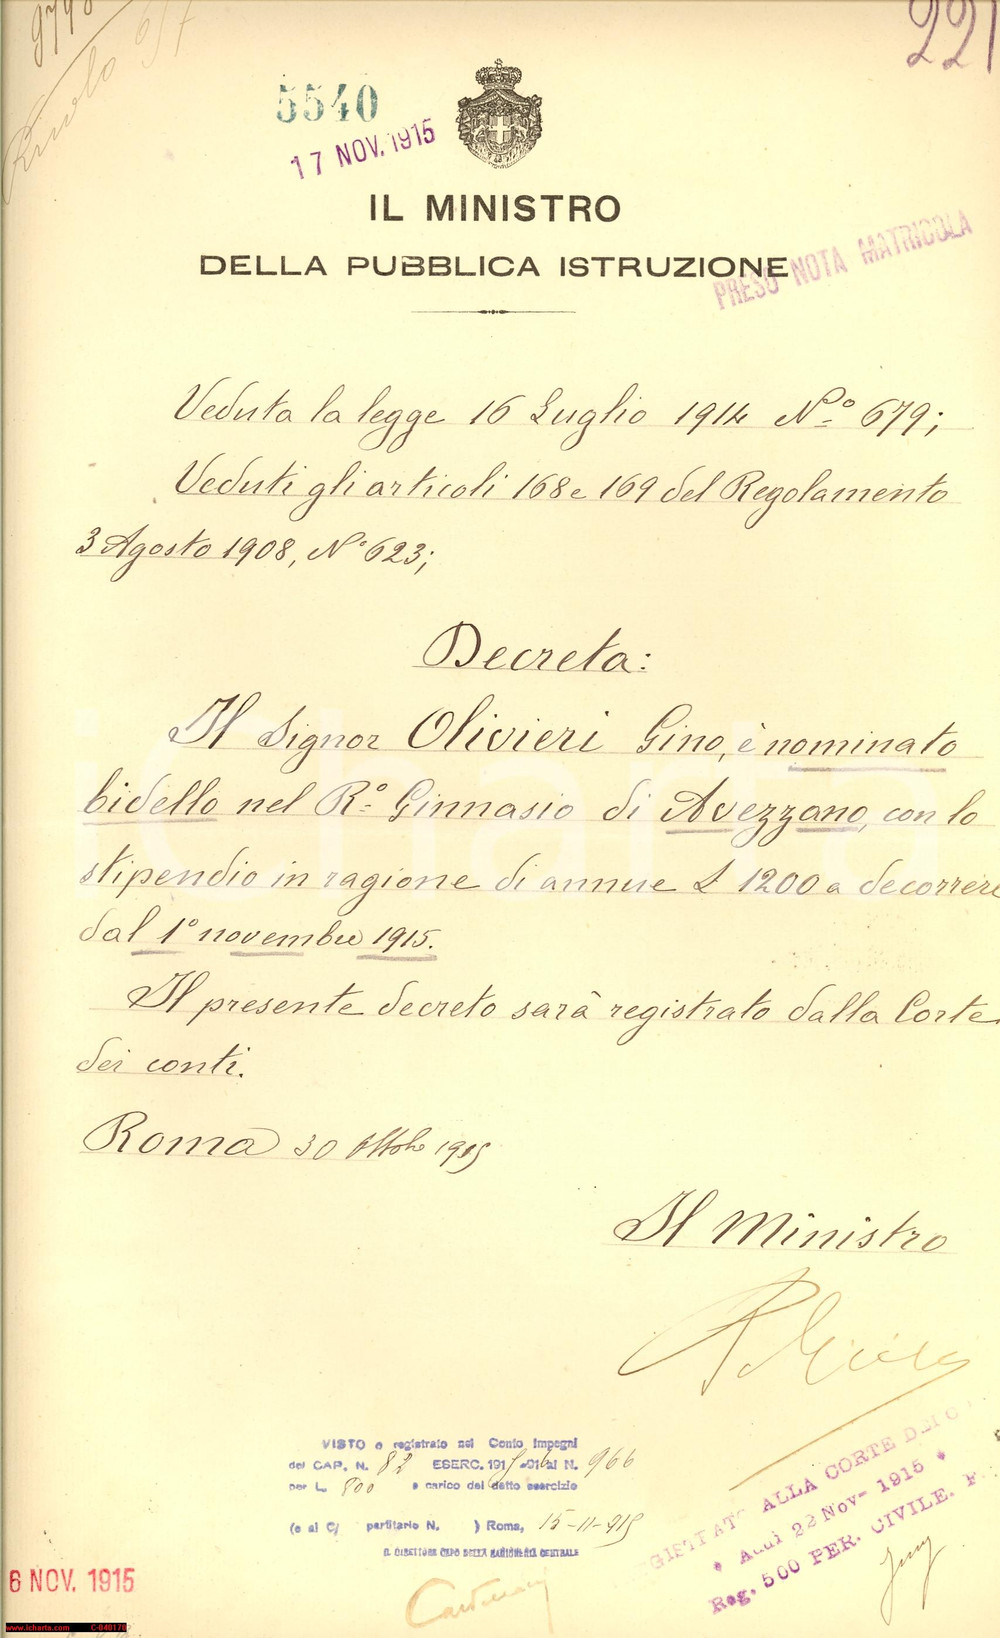 221
5540
17 NOV. 1915
IL MINISTRO
DELLA PUBBLICA ISTRUZIONE
PRESO NOTA MATRICOLA
Veduta la legge 16 Luglio 1914 No. 679;
Veduti gli articoli 168 e 169 del Regolamento
3 Agosto 1908, No 623;
Decreta:
Il Signor Olivieri Gino, è nominato
bidello nel Ro. Ginnasio di Avezzano, con lo
stipendio in ragione di annue £ 1200 a decorrere
dal 1o novembre 1915.
Il presente decreto sarà registrato dalla Corte
dei conti.
Roma 30 1915
Il Ministro
VISTO e registrato nel Conto Impegni
del CAP. N. 82 ESERC. 191 N. 966
per L. 800 a carico del detto esercizio
(e al C/ partitario N. ) Roma, 15-11-915
IL DIRETTORE CAPO DELLA RAGIONERIA CENTRALE
ALLA CORTE DEI
Addì 22 Nov 1915
Reg. 500 PER. CIVILE. F.
6 NOV. 1915
iCharta
www.icharta.com C-040178